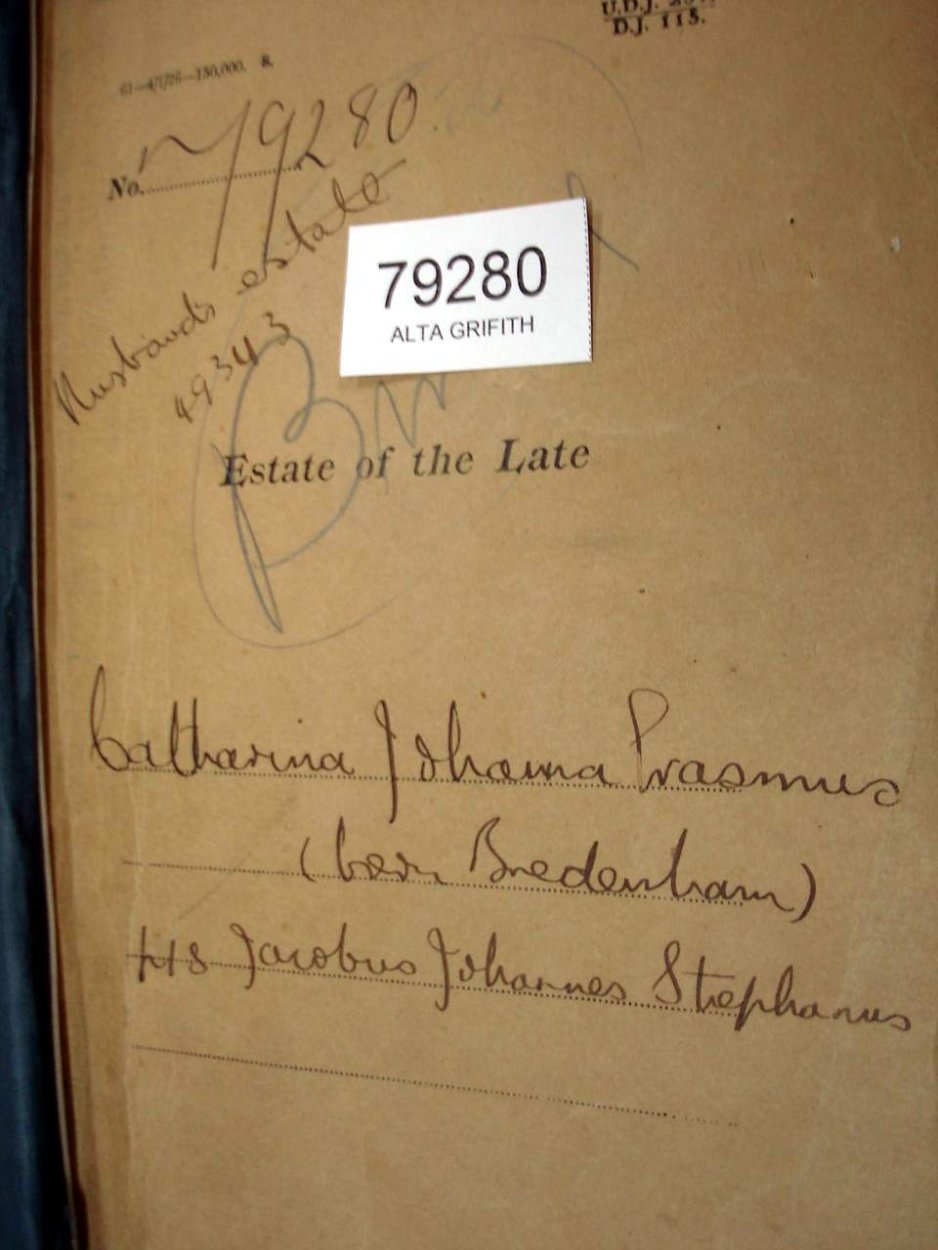 D.J. 115.
61—4/1/26—150,000. S.
No. 79280
Husbands estate
49343
79280
ALTA GRIFITH
Estate of the Late
Catharina Johanna Erasmus
(born Bredenham)
s/s Jacobus Johannes Stephanus